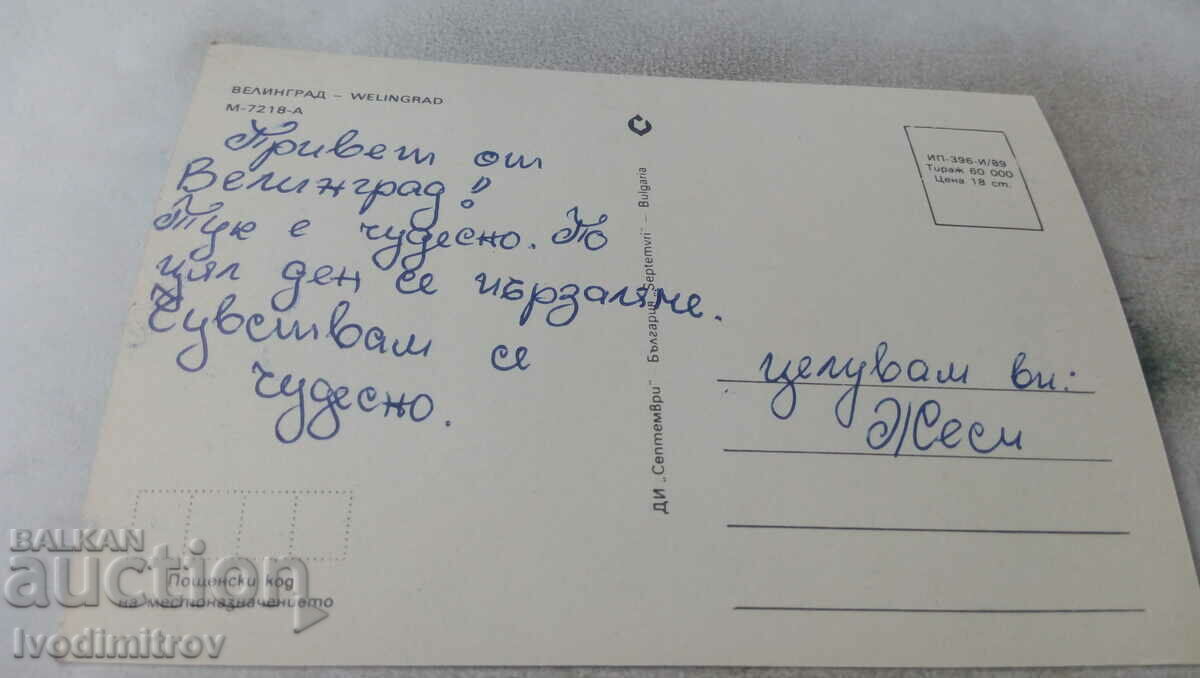 ВЕЛИНГРАД – WELINGRAD
М-7218-А
Привет от
Велинград!
Тук е чудесно. По
цял ден се пързаляме.
Чувствам се
чудесно.
ДИ „Септември" – България „Septemvri" – Bulgaria
ИП-396-И/89
Тираж 60 000
Цена 18 ст.
целувам ви:
Жеси
Пощенски код
на местоназначението
BALKAN
auction
Ivodimitrov